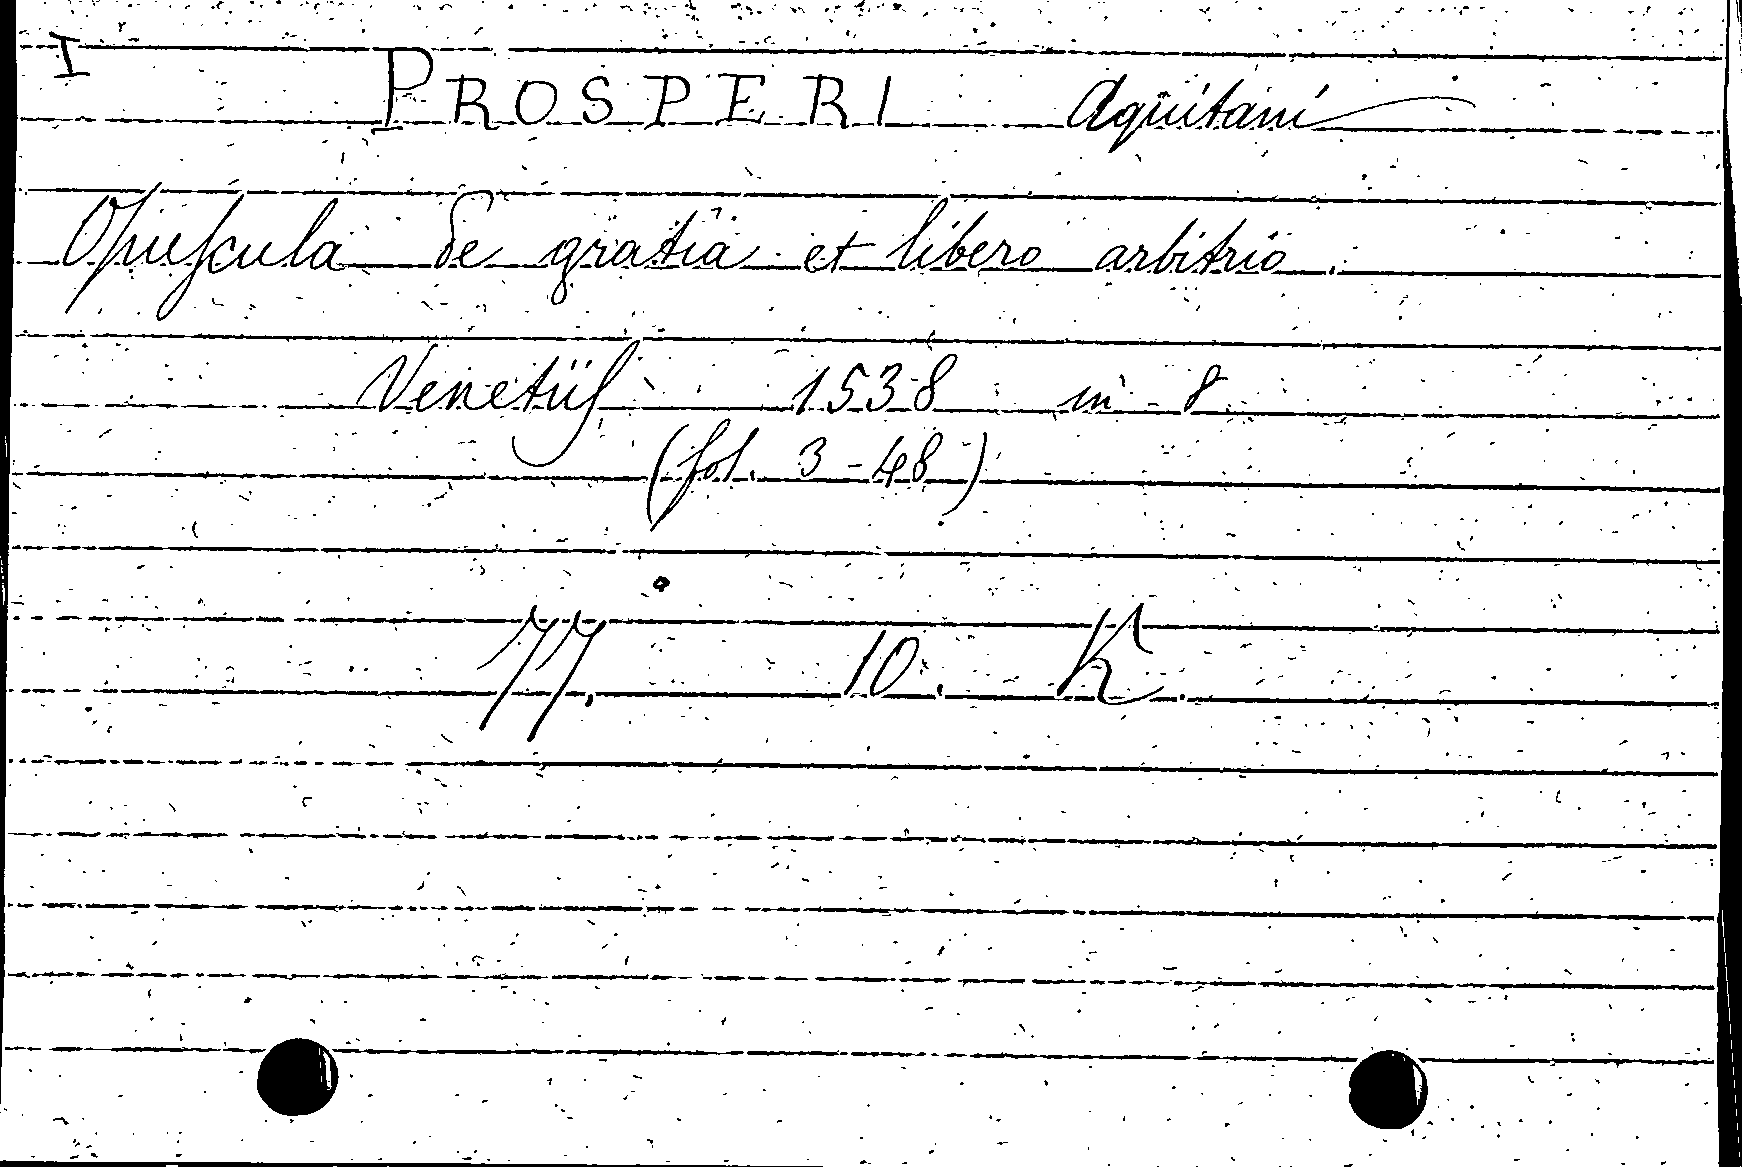 I
PROSPERI Aquitani
Opuscula de gratia et libero arbitrio.
Venetiis 1538 in 8
(fol. 3-48)
77. 10. K.